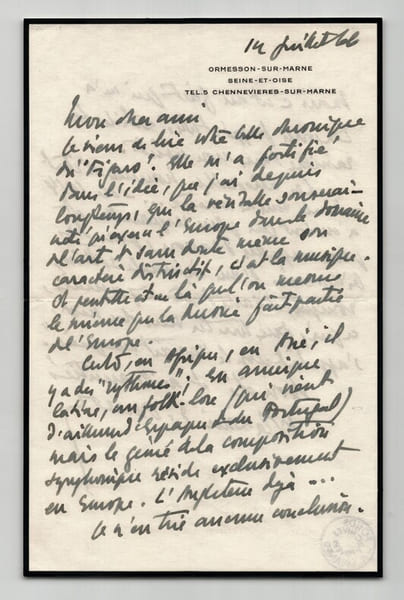 14 Juillet 66
ORMESSON-SUR-MARNE
SEINE-ET-OISE
TEL. 5 CHENNEVIERES-SUR-MARNE
Mon cher ami
Je viens de lire votre belle chronique
du "Figaro". Elle m'a fortifié,
dans l'idée, que j'ai depuis
longtemps, que la véritable souverai-
neté qu'exerce l'Europe dans le domaine
de l'art et sans doute même son
caractère distinctif, c'est la musique.
Et peut-être est-ce là qu'on mesure
le mieux que la Russie fait partie
de l'Europe.
Cuba, en Afrique, en Asie, il
y a des "rythmes"; en Amérique
latine, un folk-lore (qui vient
d'ailleurs d'Espagne et du Portugal)
mais le génie de la composition
symphonique réside exclusivement
en Europe. L'Angleterre déjà ...
Je n'en tire aucune conclusion.